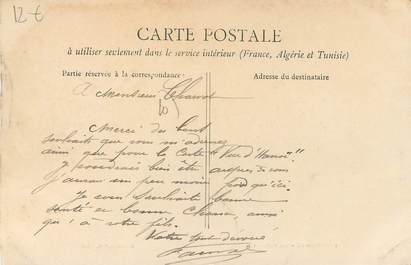 12 €
CARTE POSTALE
à utiliser seulement dans le service intérieur (France, Algérie et Tunisie)
Partie réservée à la correspondance:
Adresse du destinataire
à Monsieur
Merci des bons
souhaits que vous m'adressez
ainsi que pour la Carte "Vue d'Hanoï"!!
Je voudrais bien être auprès de vous
j'aurais un peu moins froid qu'ici
Je vous souhaite bonne
santé et bonne chance, ainsi
qu'à votre fils.
Votre tout dévoué